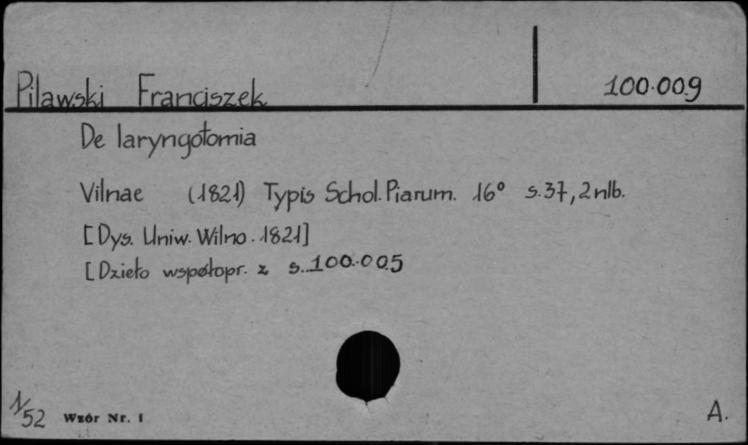 Pilawski Franciszek 100.009
De laryngotomia
Vilnae (1821) Typis Schol. Piarum. 16° s. 37, 2 nlb.
[Dys. Uniw. Wilno. 1821]
[Dzieło współopr. z s. 100.005
1/52 Wzór Nr. 1 A.